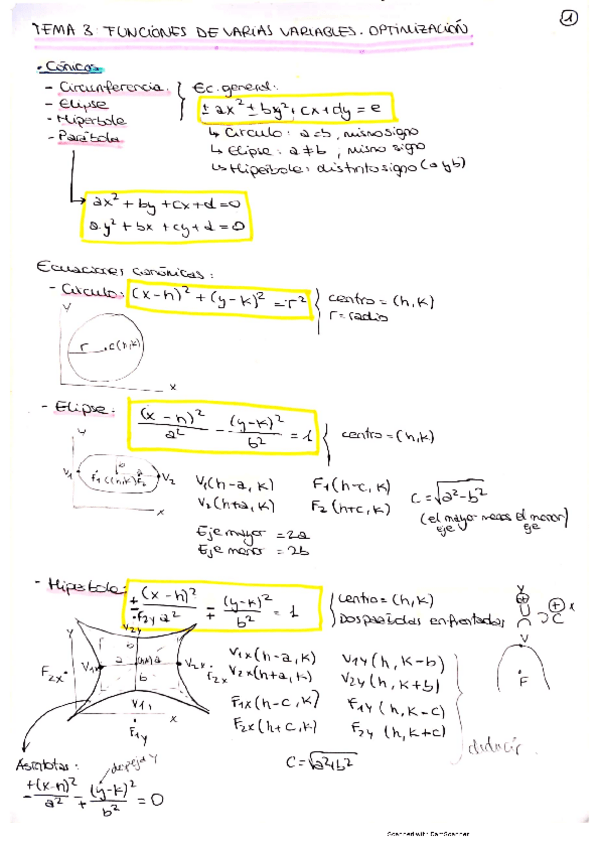 1
TEMA 3. FUNCIONES DE VARIAS VARIABLES. OPTIMIZACIÓN
· Cónicas:
- Circunferencia.
- Elipse
- Hipérbole
- Parábola
Ec. general:
± ax² ± by² + cx + dy = e
↳ Círculo: a=b, mismo signo
↳ Elipse: a≠b, mismo signo
↳ Hipérbole: distinto signo (a y b)
ax² + by + cx + d = 0
ay² + bx + cy + d = 0
Ecuaciones canónicas:
- Círculo: (x-h)² + (y-k)² = r²
centro = (h,k)
r = radio
y
r
c(h,k)
x
- Elipse: (x-h)²/a² - (y-k)²/b² = 1
centro = (h,k)
y
V1 F1 C(h,k) F2 V2
x
V1(h-a, k) F1(h-c, k)
V2(h+a, k) F2(h+c, k)
C = √a²-b²
(el eje mayor menos el menor)
eje
Eje mayor = 2a
Eje menor = 2b
- Hipérbole: ±(x-h)²/a² ∓ (y-k)²/b² = 1
centro = (h,k)
Dos parábolas enfrentadas
y
x
V
F
F2y
V2y
F2x V1x a (h,k) V2x F2x
b
V1y
x
F1y
V1x(h-a, k) V1y(h, k-b)
V2x(h+a, k) V2y(h, k+b)
F1x(h-c, k) F1y(h, k-c)
F2x(h+c, k) F2y(h, k+c)
deducir.
C = √a²+b²
Asíntotas: despejar y
±(x-h)²/a² ∓ (y-k)²/b² = 0
Scanned with CamScanner